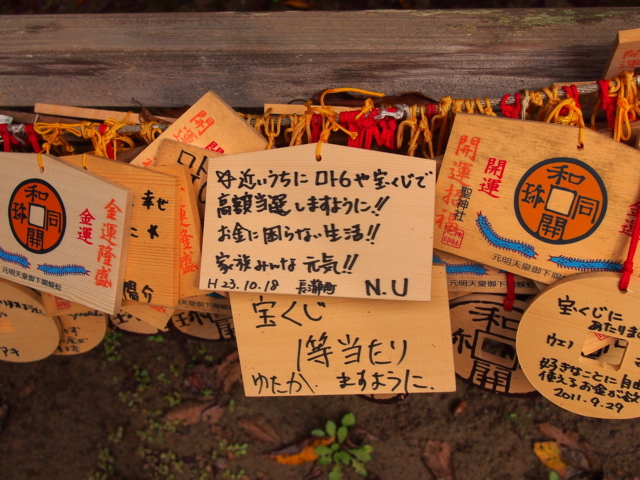 近いうちにロト6や宝くじで
高額当選しますように!!
お金に困らない生活!!
家族みんな元気!!
H23.10.18 長瀞町 N.U
宝くじ
1等当たり
ゆたか ますように.
和同開珎
金運
金運隆盛
元明天皇御下賜蜈蚣
幸せ
開運
開運招福
聖神社
和同開珎
元明天皇御下賜蜈蚣
宝くじに
あたりますように
好きなことに自由に
使えるお金が
2011.9.29
アキ